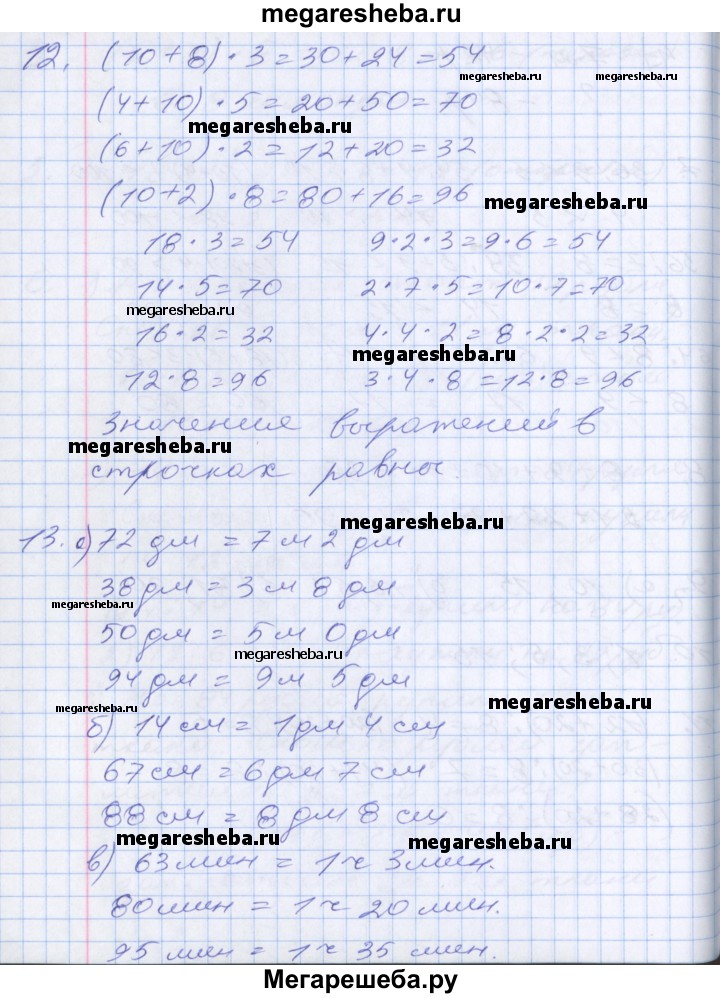 megaresheba.ru
12. (10+8)·3=30+24=54
megaresheba.ru megaresheba.ru
(4+10)·5=20+50=70
megaresheba.ru
(6+10)·2=12+20=32
(10+2)·8=80+16=96
megaresheba.ru
18·3=54 9·2·3=9·6=54
14·5=70 2·7·5=10·7=70
megaresheba.ru
16·2=32 4·4·2=8·2·2=32
megaresheba.ru
12·8=96 3·4·8=12·8=96
Значения выражений в
megaresheba.ru
строчках равны.
megaresheba.ru
13. а) 72 дм = 7 м 2 дм
38 дм = 3 м 8 дм
megaresheba.ru
50 дм = 5 м 0 дм
megaresheba.ru
94 дм = 9 м 5 дм
megaresheba.ru
megaresheba.ru
б) 14 см = 1 дм 4 см
67 см = 6 дм 7 см
88 см = 8 дм 8 см
megaresheba.ru
megaresheba.ru
в) 63 мин = 1 ч 3 мин.
80 мин = 1 ч 20 мин.
95 мин = 1 ч 35 мин.
Мегарешеба.ру